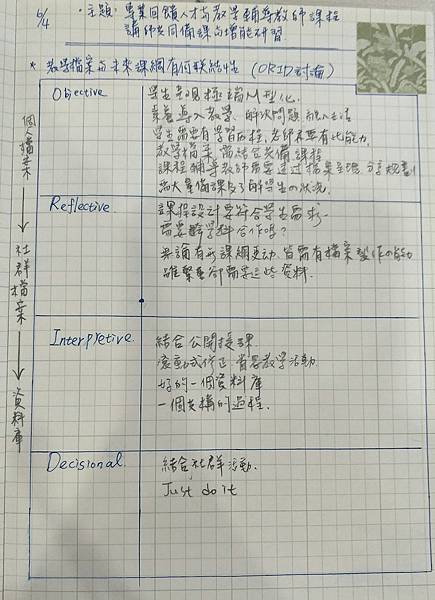 6/4
·主題: 專業回饋人才与教學輔導教師課程
講師共同備課与增能研習.
* 教學檔案与未來課綱有何联結性 (ORID討論)
個人檔案 → 社群檔案 → 資料庫
Objective
學生呈現極端M型化.
素養導入教學, 解決問題, 融入生活
學生需要有學習历程, 老師亦要有此能力.
教學檔案, 需結合共備課程
課程輔導教師需要透过檔案呈現, 分享規劃
大量備課及了解學生の狀況.
Reflective
課程設計要符合學生需求
需要跨學科合作嗎?
無論有無課綱更动, 皆需有檔案製作の能力
雖繁重卻需要這些資料.
Interpretive.
結合公開授課.
滾動式修正, 省思教學活動
好的一個資料庫
一個支構的過程.
Decisional.
結合社群活動.
Just do it